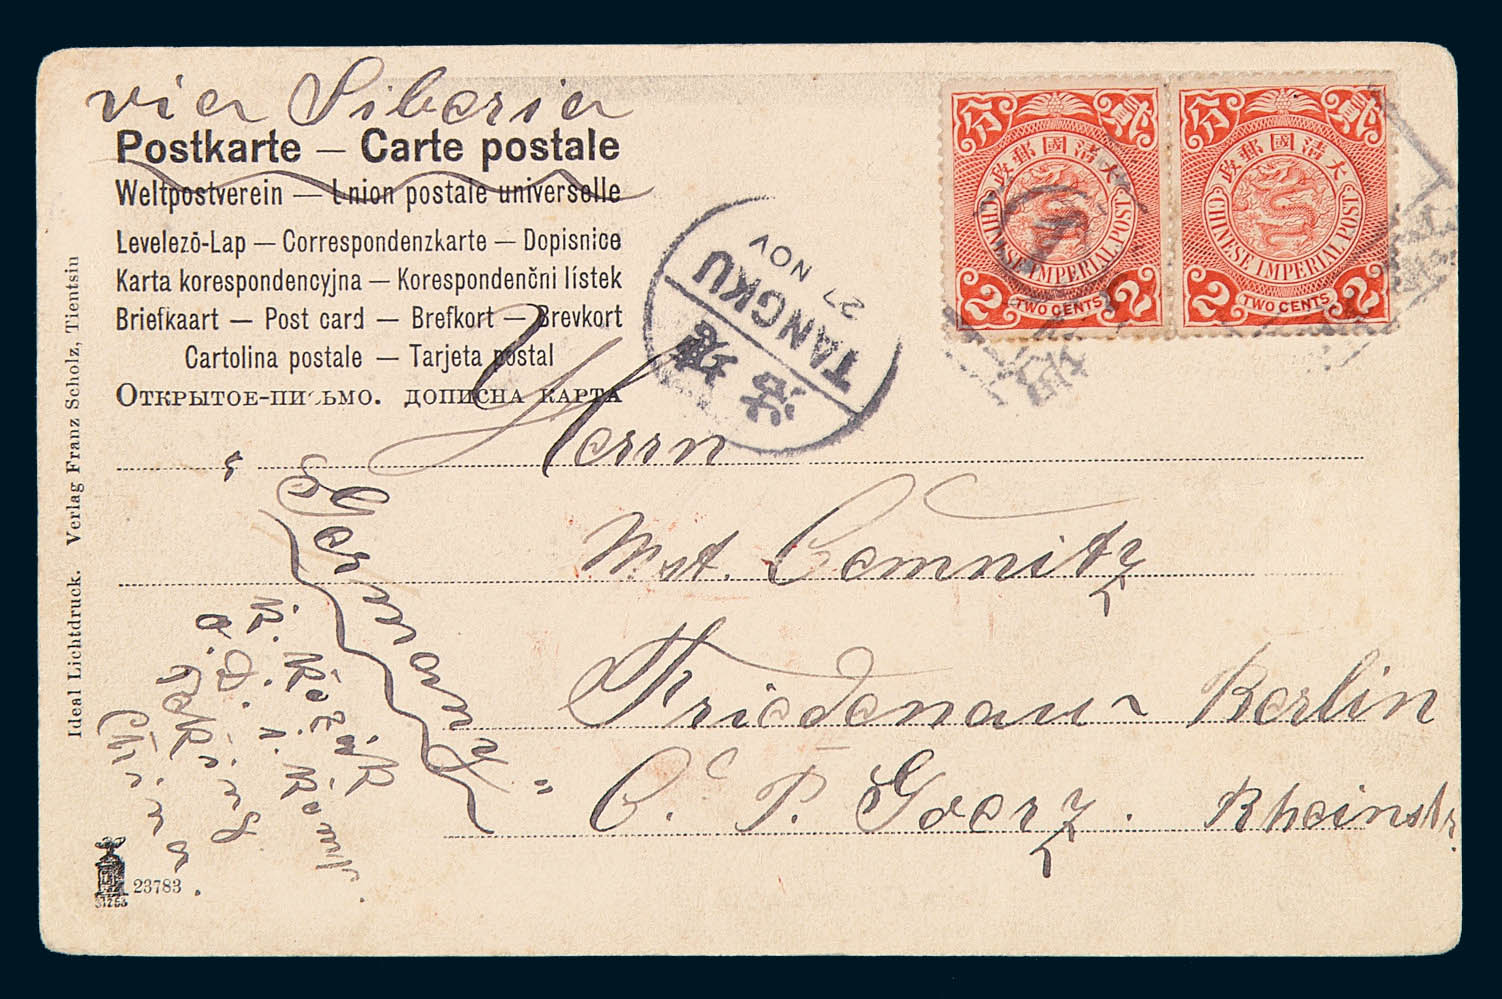 via Siberia
Postkarte — Carte postale
Weltpostverein — Union postale universelle
Levelező-Lap — Correspondenzkarte — Dopisnice
Karta korespondencyjna — Korespondenční lístek
Briefkaart — Post card — Brefkort — Brevkort
Cartolina postale — Tarjeta postal
Открытое-письмо. дописна карта
分 貳
大清國郵政
CHINESE IMPERIAL POST
2 TWO CENTS 2
分 貳
大清國郵政
CHINESE IMPERIAL POST
2 TWO CENTS 2
TANGKU
27 NOV
沽 塘
Herrn
Mst. Cemnitz
Friedenau - Berlin
C. P. Goerz. Rheinstr.
"Germany"
China
Ideal Lichtdruck. Verlag Franz Scholz, Tientsin
23783